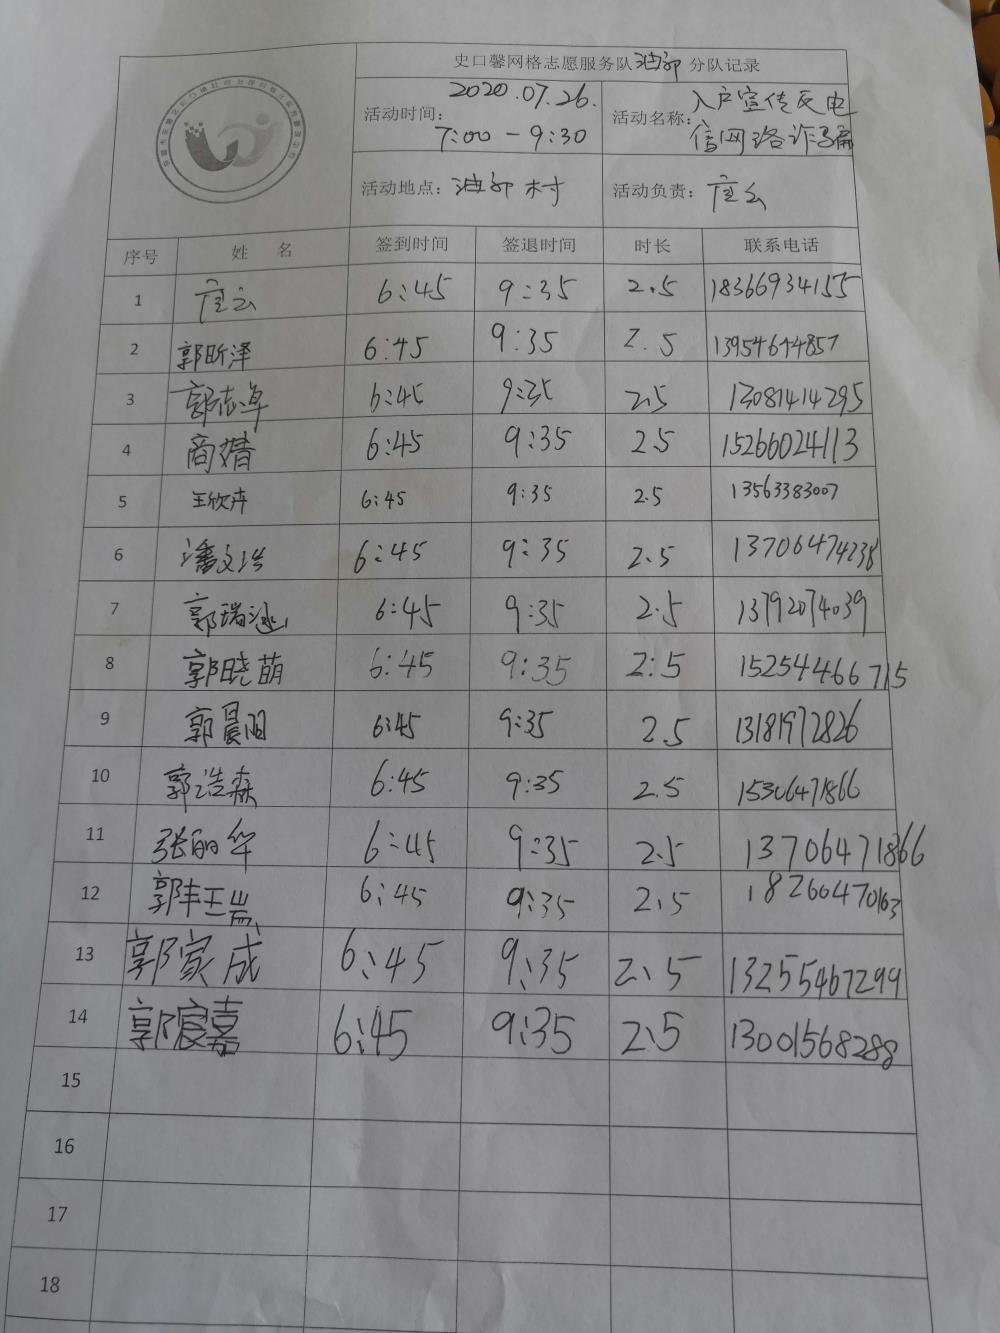 史口馨网格志愿服务队油郭分队记录
活动时间: 2020.07.26. 7:00-9:30 活动名称: 入户宣传反电信网络诈骗
活动地点: 油郭村 活动负责:
序号 姓 名 签到时间 签退时间 时长 联系电话
1 6:45 9:35 2.5 18366934155
2 郭昕泽 6:45 9:35 2.5 13954644857
3 郭志卓 6:45 9:35 2.5 13081414295
4 商婧 6:45 9:35 2.5 15266024113
5 王欣卉 6:45 9:35 2.5 13563383007
6 潘文浩 6:45 9:35 2.5 13706474238
7 郭瑞涵 6:45 9:35 2.5 13792074039
8 郭晓萌 6:45 9:35 2:5 15254466715
9 郭晨阳 6:45 9:35 2.5 13181972826
10 郭浩森 6:45 9:35 2.5 15306471866
11 张丽华 6:45 9:35 2.5 13706471866
12 郭丰瑞 6:45 9:35 2.5 18260470163
13 郭家成 6:45 9:35 2.5 13255467299
14 郭宸嘉 6:45 9:35 2.5 13001568288
15
16
17
18